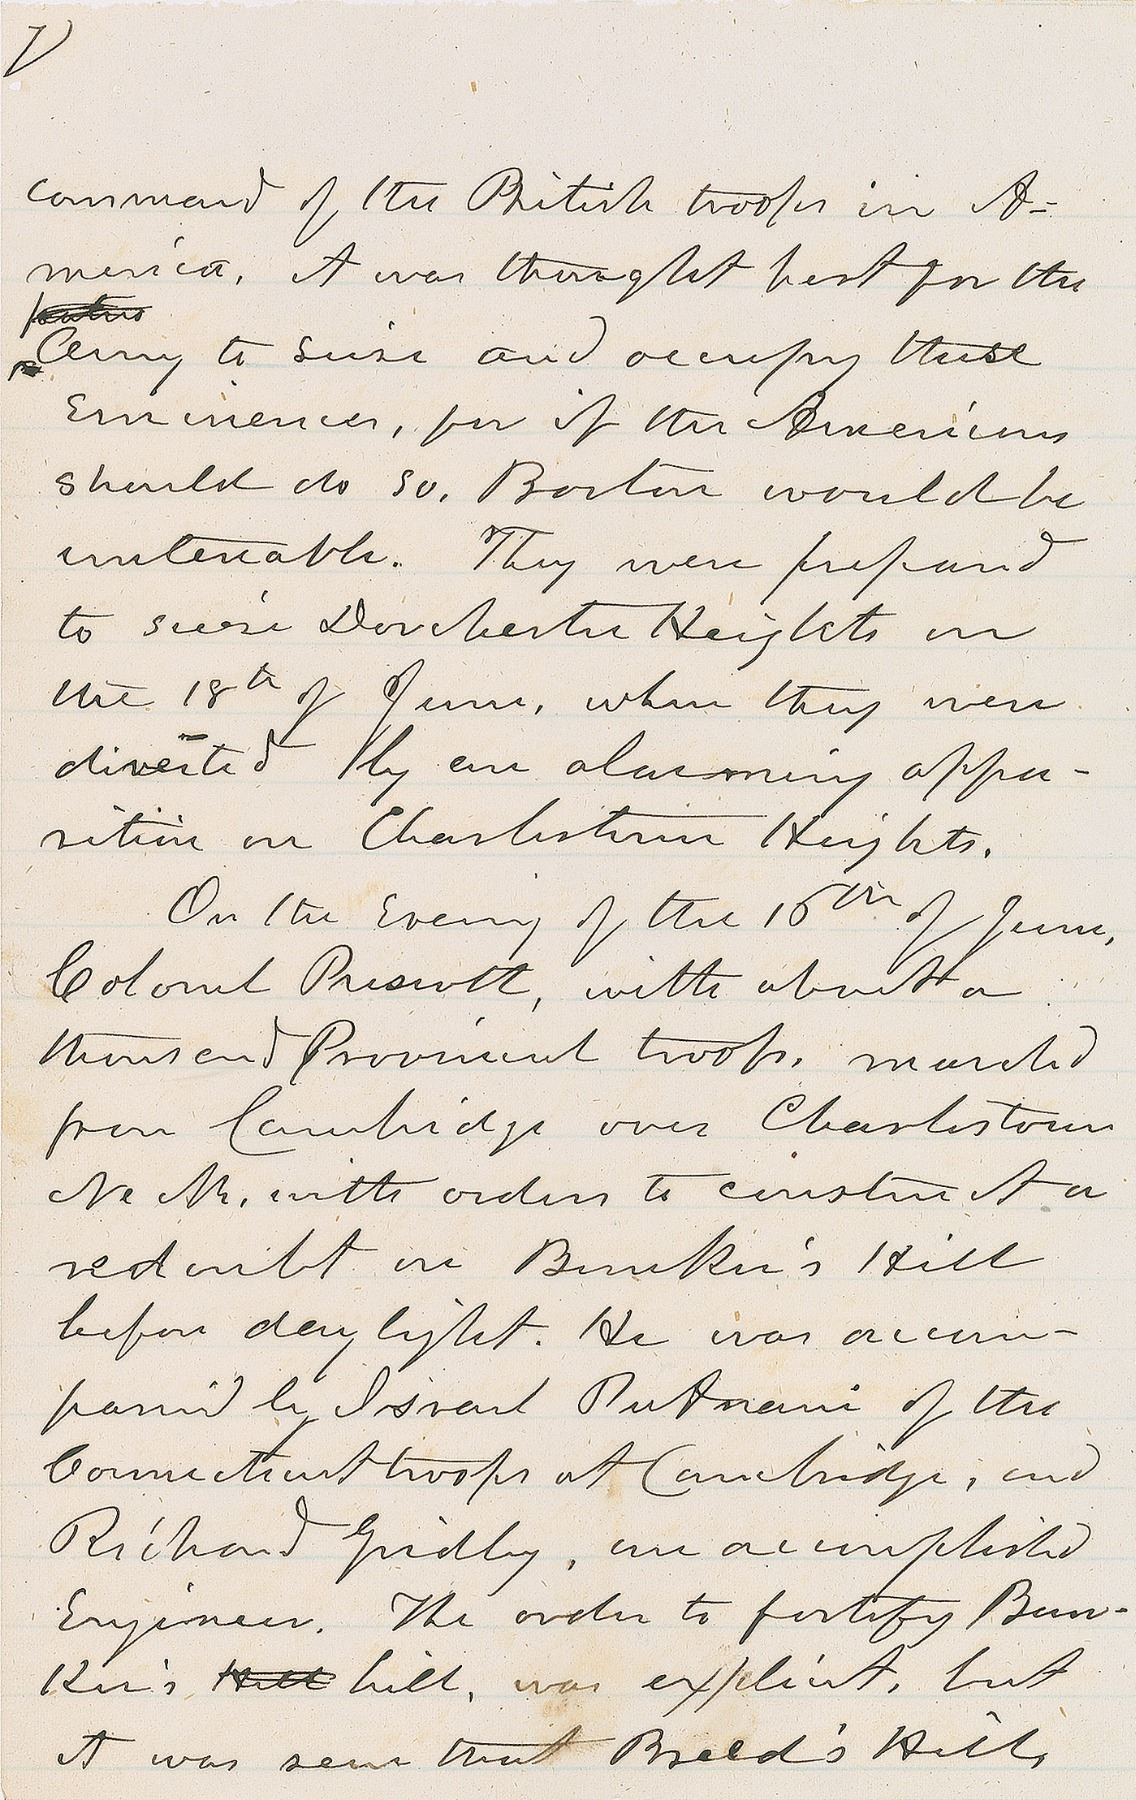 V
command of the British troops in A=
merica, it was thought best for the
Army to seize and occupy these
Eminences, for if the Americans
should do so, Boston would be
untenable. They were prepared
to seize Dorchester Heights on
the 18th of June, when they were
diverted by an alarming appa-
rition on Charlestown Heights.
On the Evening of the 16th of June,
Colonel Prescott, with about a
thousand Provincial troops, marched
from Cambridge over Charlestown
Neck, with orders to construct a
redoubt on Bunker's Hill
before daylight. He was accom-
panied by Israel Putnam of the
Connecticut troops at Cambridge, and
Richard Gridley, an accomplished
Engineer. The order to fortify Bun-
ker's Hill hill, was explicit, but
it was seen that Breed's Hill,